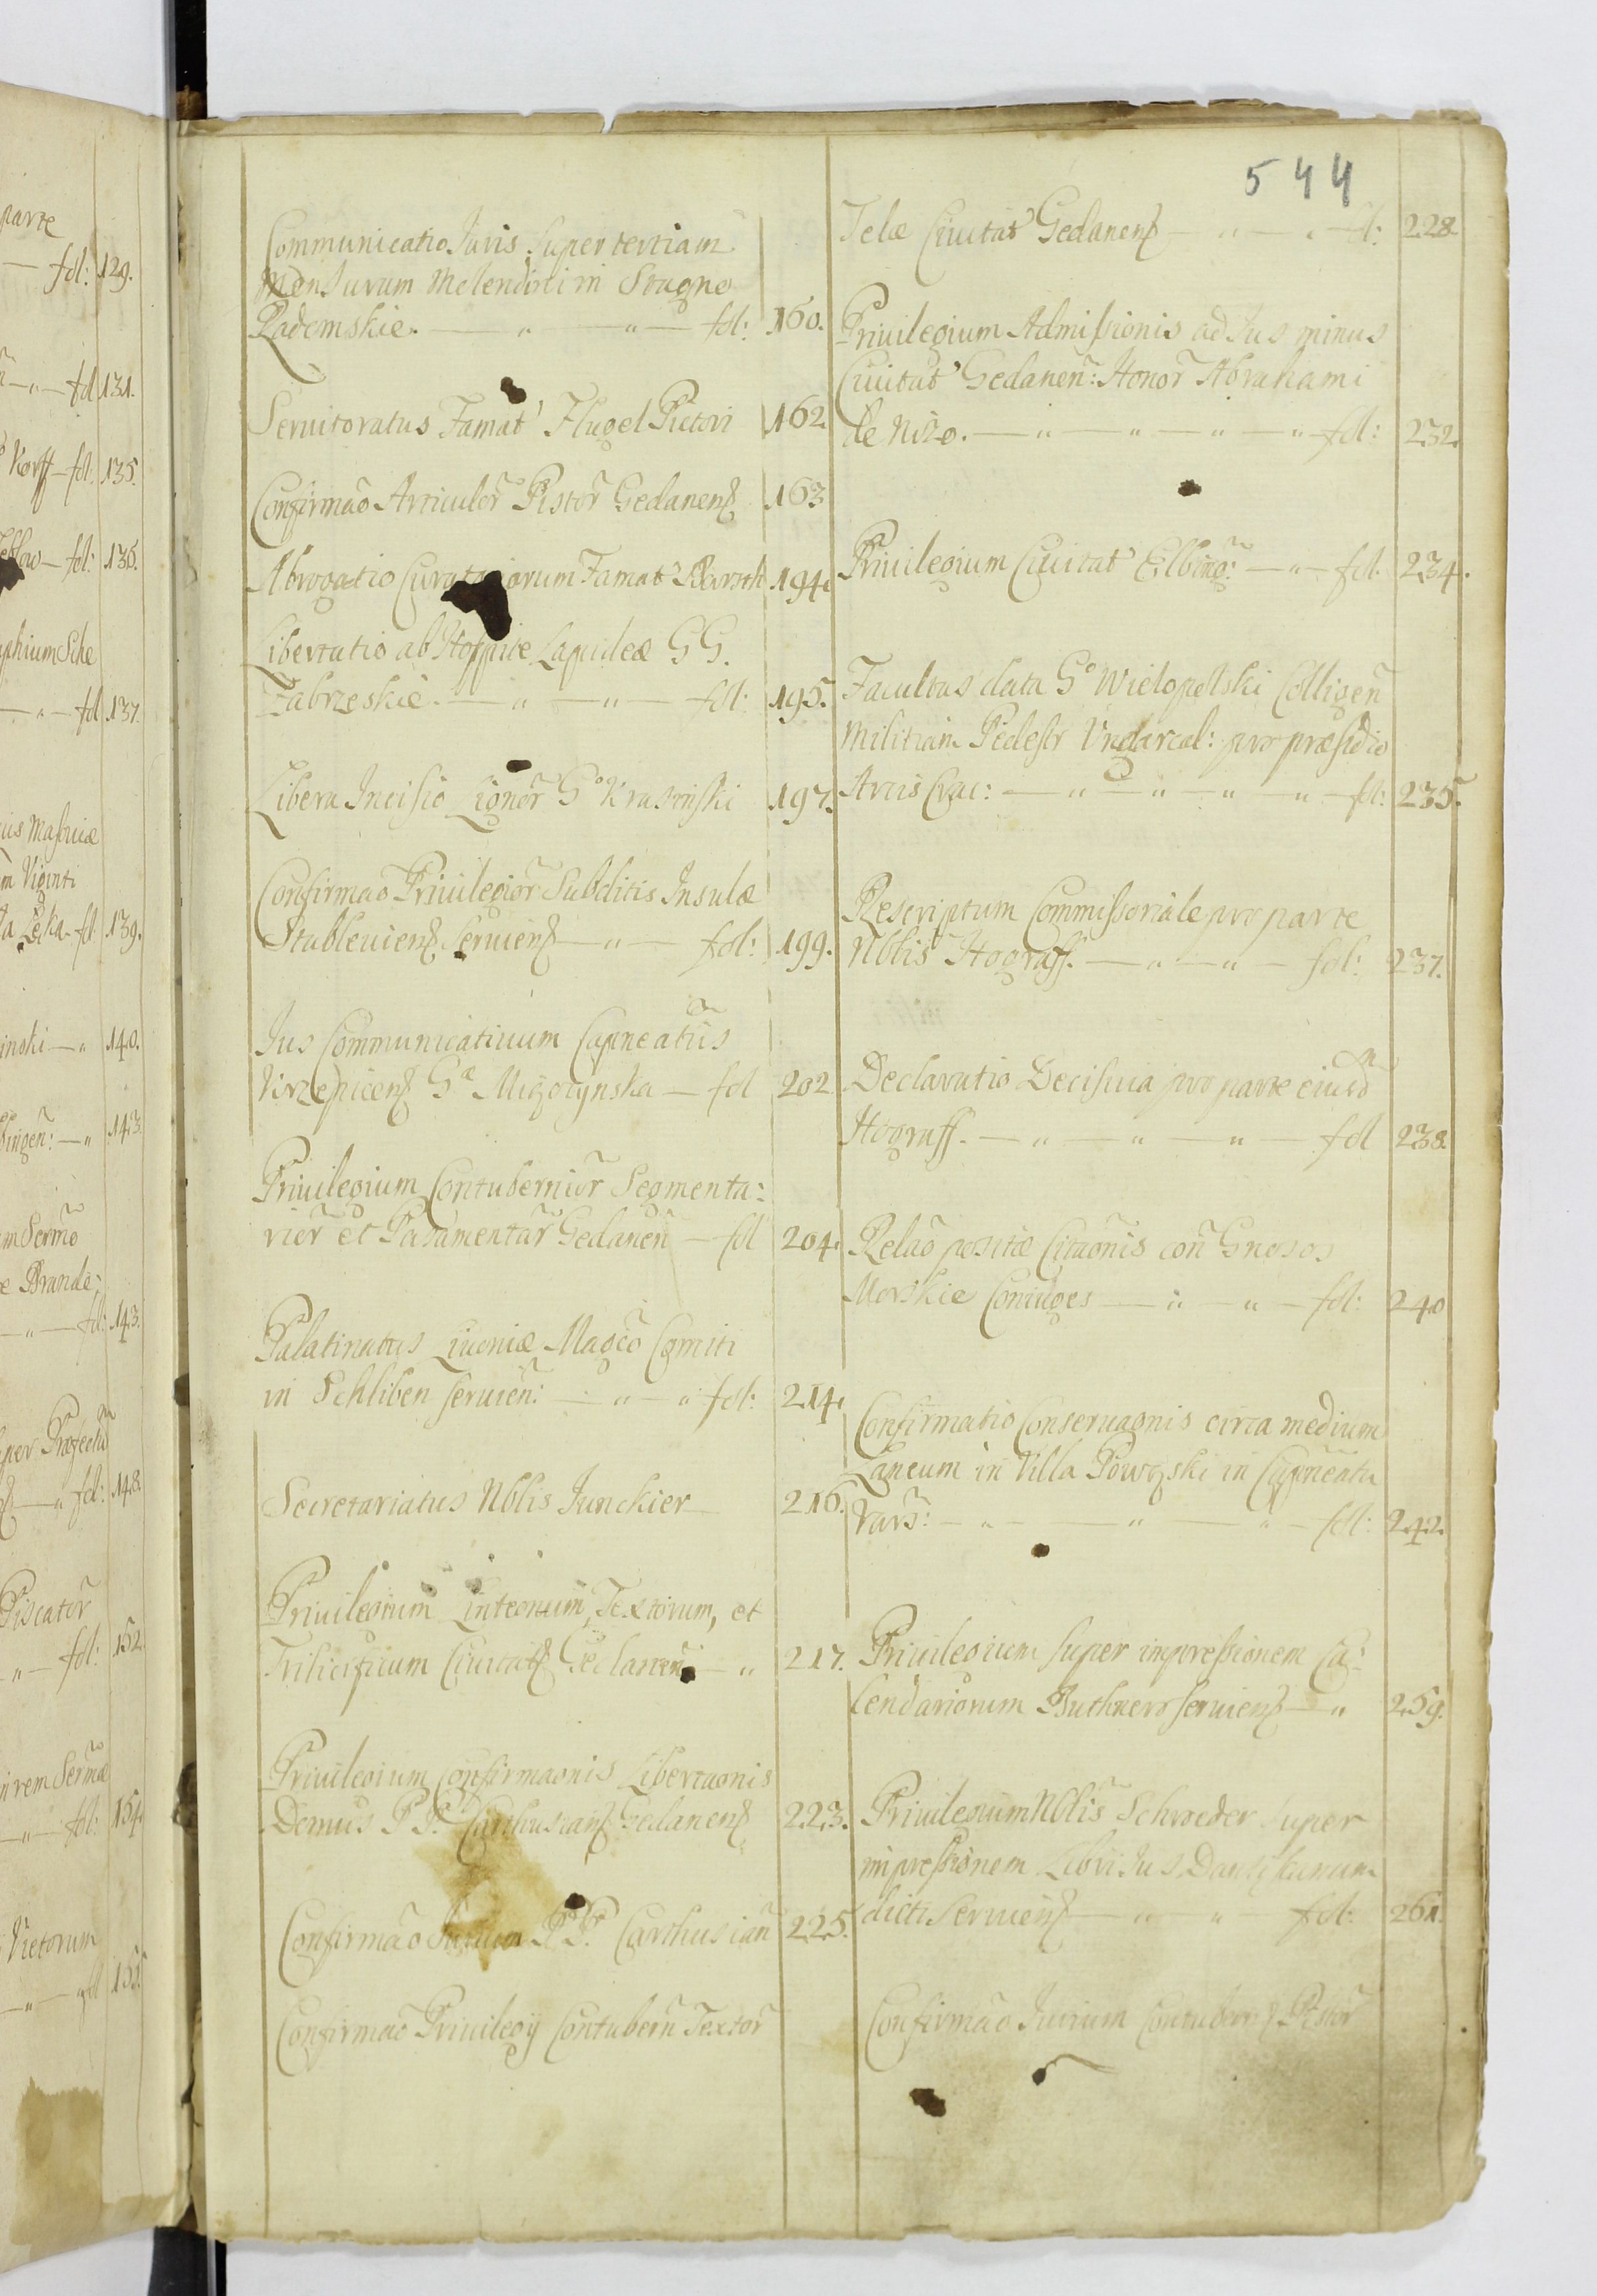 parte
fol: 129.
fol 131.
Korff — fol: 135.
fol: 136.
fol 137.
Viginti
fol 139.
140.
143.
Brande:
fol: 143.
fol: 148.
Piscator̃
fol: 152.
fol: 154.
fol 155.
544
Communicatio Juris super tertiam
Mensuram Molendini in Stagno
Radomskie. — " — " — fol: 160.
Seruitoratus Famat' Flugel Pictori 162
Confirmaõ Articulor̃ Pistor̃ Gedanens 163
Abrogatio Famat' 194.
Libertatio ab Hospite Lapideæ GG.
Zabrzeskie. — " — " — fol: 195.
Libera Incisio Lignor̃ G° Krasinski 197.
Confirmaõ Priuilegior̃ Subditis Insulæ
Stableuiens Seruiens — " — fol: 199.
Jus Communicatiuum Capneatũs
G^a — fol 202
Priuilegium Contubernior̃ Segmenta:
rior̃ et Gedanen̄ — fol 204.
Palatinatus Liuoniæ Magcõ Comiti
in Schliben seruien̄: — " — " fol: 214.
Secretariatus Nblis Junckier — 216.
Priuilegium Linteonum, Textorum, et
Ciuitats Gedanen̄ — " 217.
Priuilegium Confirmaonis Libertaonis
Domus P P. Carthusians Gedanens 223.
Confirmaõ P P. Carthusian̄ 225.
Confirmaõ Priuilegÿ Contubern̄ Textor̃
Telæ Ciuitat' Gedanens — " — " — fol: 228
Priuilegium Admissionis ad Jus minus
Ciuitat' Gedanen̄: Honor̃ Abrahami
de Nizo. — " — " — " — " — fol: 232.
Priuilegium Ciuitat' Elbing: — " — fol. 234.
Facultas data G° Wielopolski Colligen̄
Militiam Pedestr Vngarcal: pro præsidio
Arcis Crac: — " — " — " — " — fol: 235.
Rescriptum Commissoriale pro parte
Nblis Hograff. — " — " — fol: 237.
Declaratio Decisiua pro parte eiusd
Hograff. — " — " — " — fol 238.
Relaõ positæ Citaonis con̄ Gnosos
Morskie Coniuges — " — " — fol: 240
Confirmatio Conseruaonis circa medium
Laneum in Villa Powązski in Capneatu
Vars: — " — " — " — fol: 242.
Priuilegium super impressionem Ca:
lendariorum Buthnero seruiens — " 259.
Priuilegium Nblis Schroeder super
impressionem Libri Jus
dicti Seruiens — " — " — fol: 261.
Confirmaõ Jurium Contubern Pistor̃